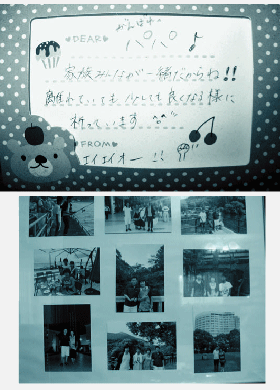 がんばれ〜
DEAR パパ
家族みんなが一緒だからね!!
離れていても、少しでも良くなる様に
祈っています ^^
FROM
エイエイオー!!